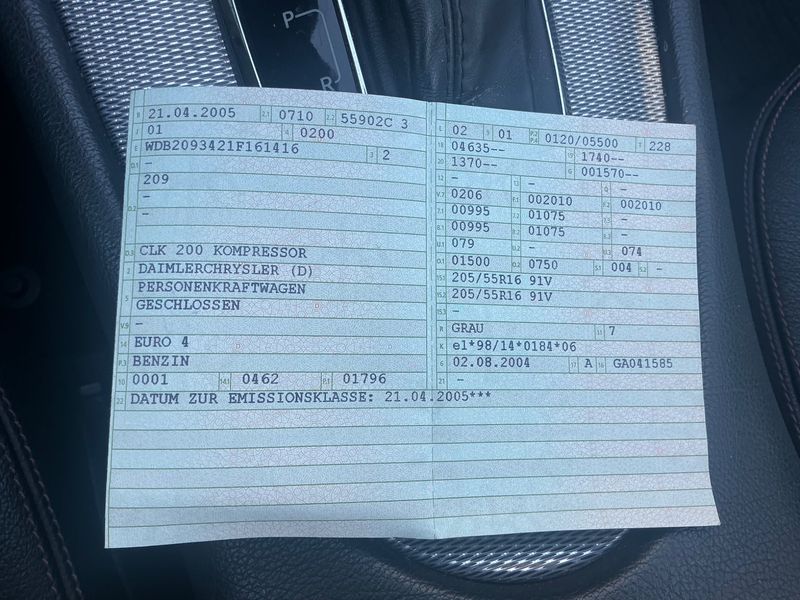 P
R
B 21.04.2005 2.1 0710 2.2 55902C 3
J 01 4 0200
E WDB2093421F161416 3 2
D.1 -
209
D.2 -
-
D.3 CLK 200 KOMPRESSOR
2 DAIMLERCHRYSLER (D)
5 PERSONENKRAFTWAGEN
GESCHLOSSEN
V.9 -
14 EURO 4
P.3 BENZIN
10 0001 14.1 0462 P.1 01796
22 DATUM ZUR EMISSIONSKLASSE: 21.04.2005***
L 02 9 01 P.2 P.4 0120/05500 T 228
18 04635-- 19 1740--
20 1370-- G 001570--
12 - 13 - Q -
V.7 0206 F.1 002010 F.2 002010
7.1 00995 7.2 01075 7.3 -
8.1 00995 8.2 01075 8.3 -
U.1 079 U.2 - U.3 074
O.1 01500 O.2 0750 S.1 004 S.2 -
15.1 205/55R16 91V
15.2 205/55R16 91V
15.3 -
R GRAU 11 7
K e1*98/14*0184*06
6 02.08.2004 17 A 16 GA041585
21 -